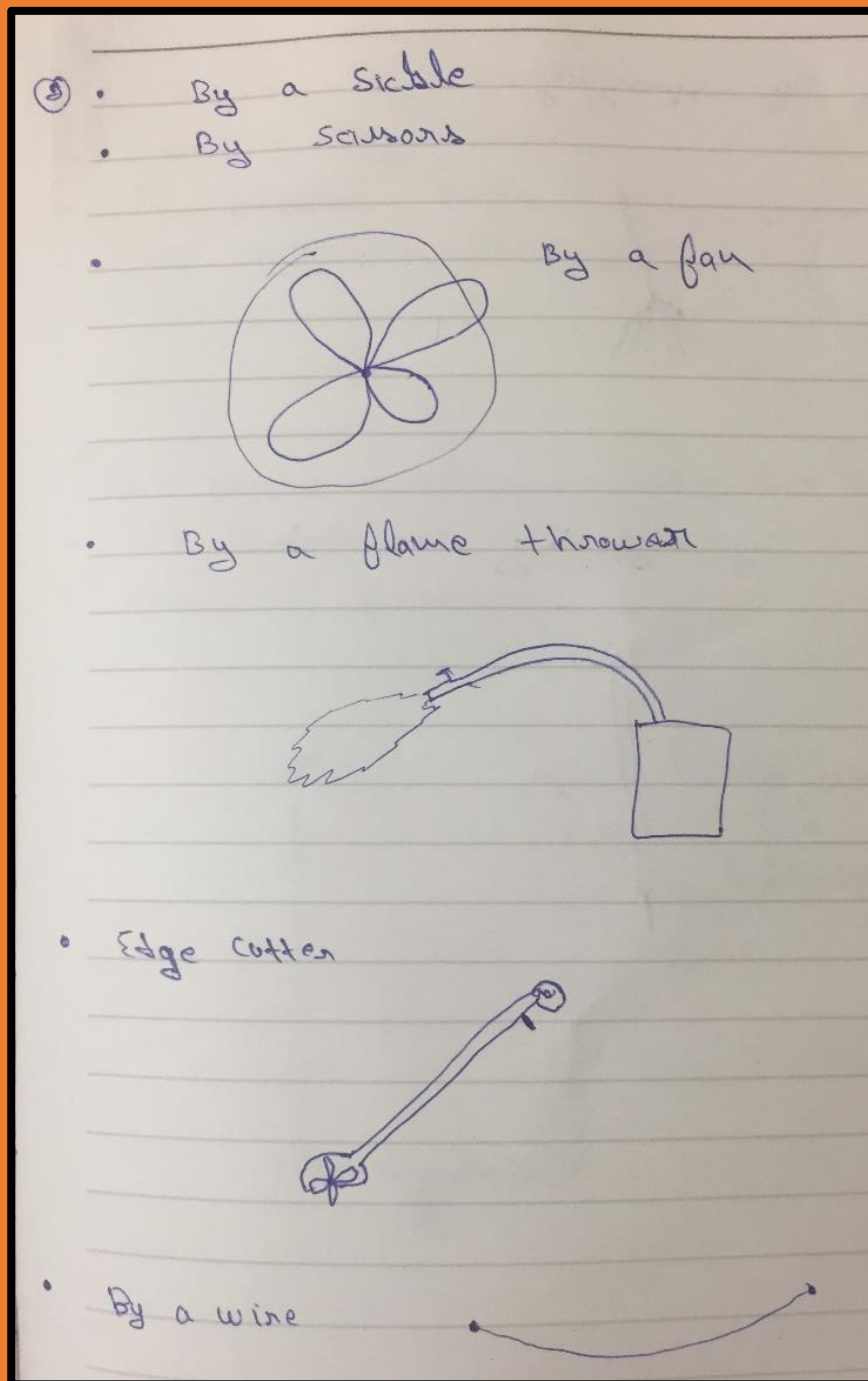 ⑤ • By a Sickle
• By scissors
• By a fan
• By a flame thrower
• Edge cutter
• By a wire